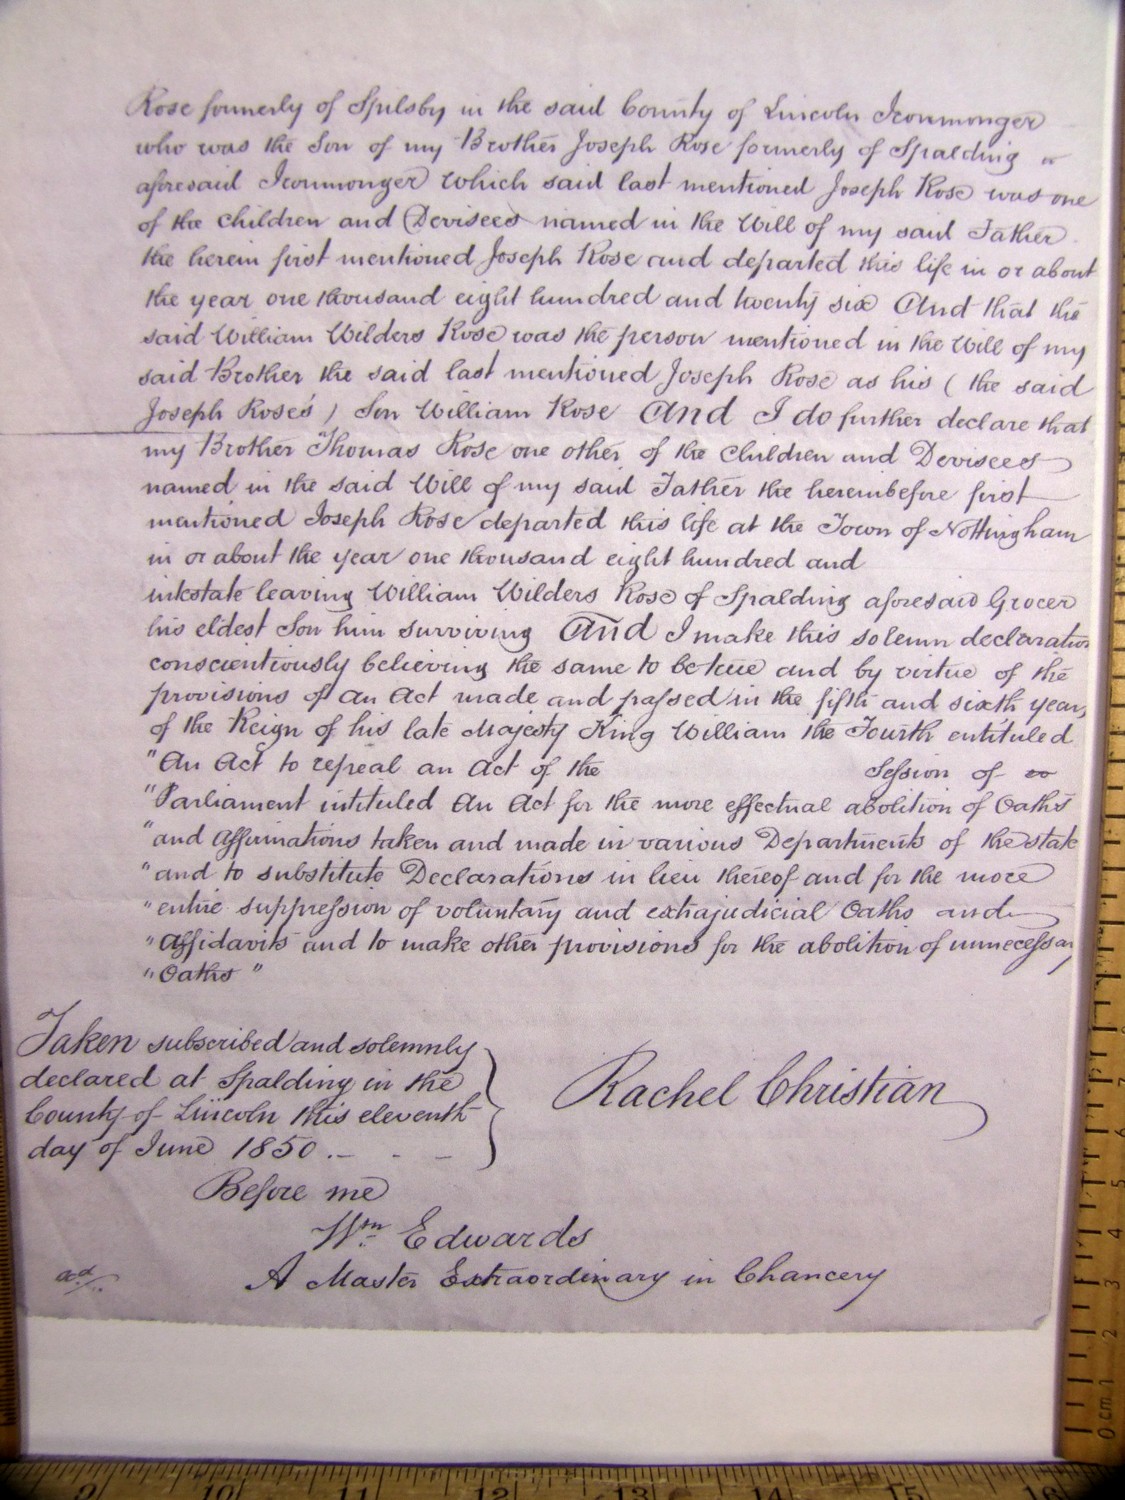 Rose formerly of Spilsby in the said County of Lincoln Ironmonger
who was the Son of my Brother Joseph Rose formerly of Spalding
aforesaid Ironmonger which said last mentioned Joseph Rose was one
of the Children and Devisees named in the Will of my said Father
the herein first mentioned Joseph Rose and departed this life in or about
the year one thousand eight hundred and twenty six And that the
said William Wilders Rose was the person mentioned in the Will of my
said Brother the said last mentioned Joseph Rose as his (the said
Joseph Rose's) Son William Rose And I do further declare that
my Brother Thomas Rose one other of the Children and Devisees
named in the said Will of my said Father the hereinbefore first
mentioned Joseph Rose departed this life at the Town of Nottingham
in or about the year one thousand eight hundred and
intestate leaving William Wilders Rose of Spalding aforesaid Grocer
his eldest Son him surviving And I make this solemn declaration
conscientiously believing the same to be true and by virtue of the
provisions of an Act made and passed in the fifth and sixth years
of the Reign of his late Majesty King William the Fourth entituled
"An Act to repeal an Act of the Session of
"Parliament intituled An Act for the more effectual abolition of Oaths
"and Affirmations taken and made in various Departments of the State
"and to substitute Declarations in lieu thereof and for the more
"entire suppression of voluntary and extrajudicial Oaths and
"Affidavits and to make other provisions for the abolition of unnecessary
"Oaths"
Taken subscribed and solemnly
declared at Spalding in the
County of Lincoln this eleventh
day of June 1850. - - -
Rachel Christian
Before me
Wm Edwards
A Master Extraordinary in Chancery
9 10 11 12 13 14 15 16
7
6
5
4
3
2
1
0 cm.